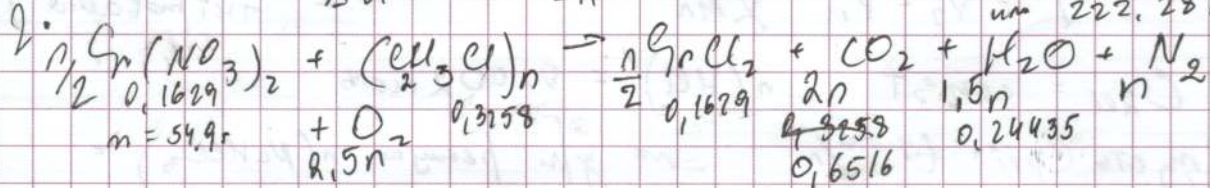 или 222.28
2. n/2 Sr(NO₃)₂ + (C₂H₃Cl)n → n/2 SrCl₂ + CO₂ + H₂O + N₂
0,1629 0,3258 0,1629 2n 1,5n n
m = 54,9г + O₂ 0,3258 0,24435
2,5n 0,6516